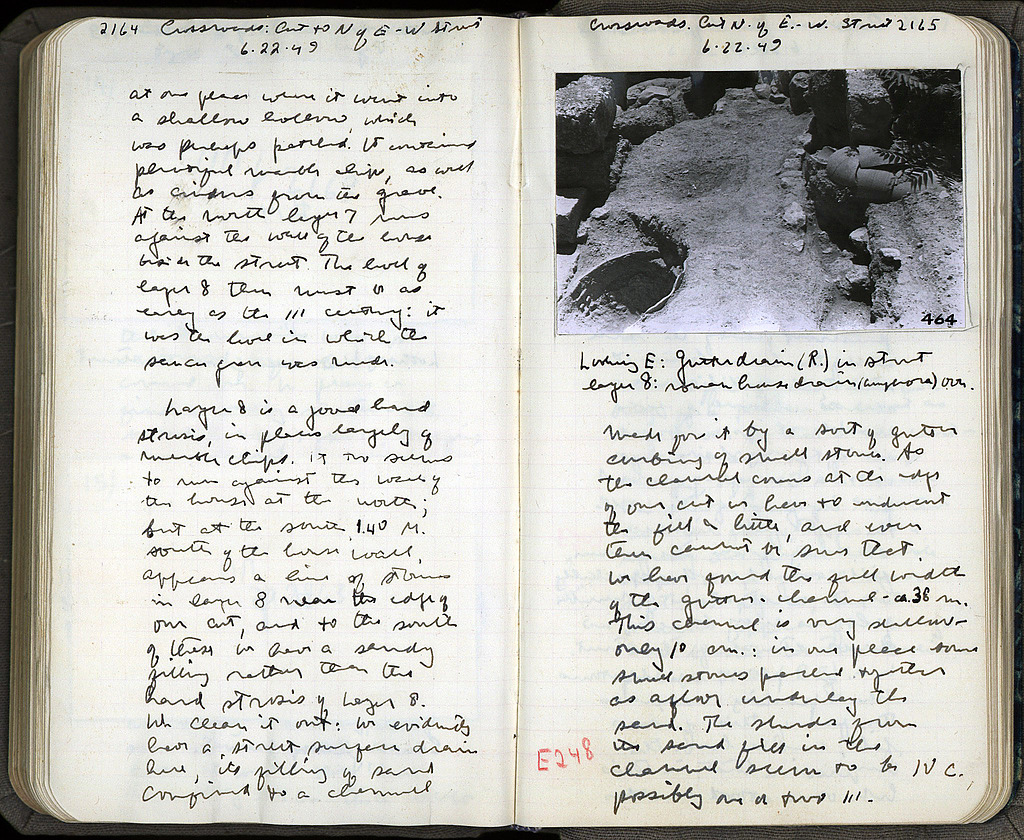 2164 Crossroads: Cut to N of E-W Street
6.22.49
at one place where it went into
a shallow hollow, which
was perhaps patched. It contained
plentiful marble chips, as well
as cinders from the grave.
At the north layer 7 runs
against the wall of the house
beside the street. The level of
layer 8 then must be as
early as the III century: it
was the level in which the
grave was made.
Layer 8 is a good hard
strosis, in places largely of
marble chips. It too seems
to run against the wall of
the house at the north;
but at the south 1.40 M.
south of the house wall,
appears a line of stones
in layer 8 near the edge of
our cut, and to the south
of these we have a sandy
filling rather than the
hard strosis of Layer 8.
We clean it out: we evidently
have a street surface drain
here, its filling of sand
confined to a channel
Crossroads. Cut N. of E.-W. Street 2165
6.22.49
464
Looking E: Gutter drain (R.) in street
layer 8: roman house drain (amphora) over.
made for it by a sort of gutter
curbing of small stones. As
the channel comes at the edge
of our cut we have to undercut
the fill a little, and even
then cannot be sure that
we have found the full width
of the gutter-channel - ca .38 m.
This channel is very shallow -
only 10 cm.: in one place some
small stones packed together
as a floor underlay the
sand. The sherds from
the sand fill in the
channel seem to be IV c.
possibly one or two III.
E248